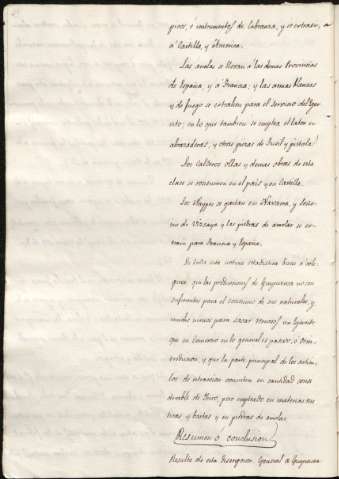 picos, è instrumentos de labranza, y se extraen, a
à Castilla, y America.
Las anclas se llevan à las demas Provincias
de España, y à Francia, y las armas blancas
y de fuego se extraen para el servicio del Exer
cito, en lo que tambien se emplea el laton en
abrazaderas, y otras piezas de Fusil y pistola.
Los Calderos ollas y demas obras de esta
clase se consumen en el país y en Castilla.
Los se gastan en Navarra, y Seño-
rio de Vizcaya y las piedras de amolar se ex-
traen para Francia y España.
De toda esta noticia estadistica biene à cole-
girse, que las producciones de Guipuzcoa no son
suficientes para el consumo de sus naturales, y
mucho menos para sacar
que su Comercio en lo general es pasivo,
y que la parte principal de los articu-
los de extraccion consiste en cantidad consi
derable de fierro, pero empleado en materias
y bastas y en piedras de amolar.
Resumen ò conclusion
Resulta de esta Descripcion General de Guipuzcoa